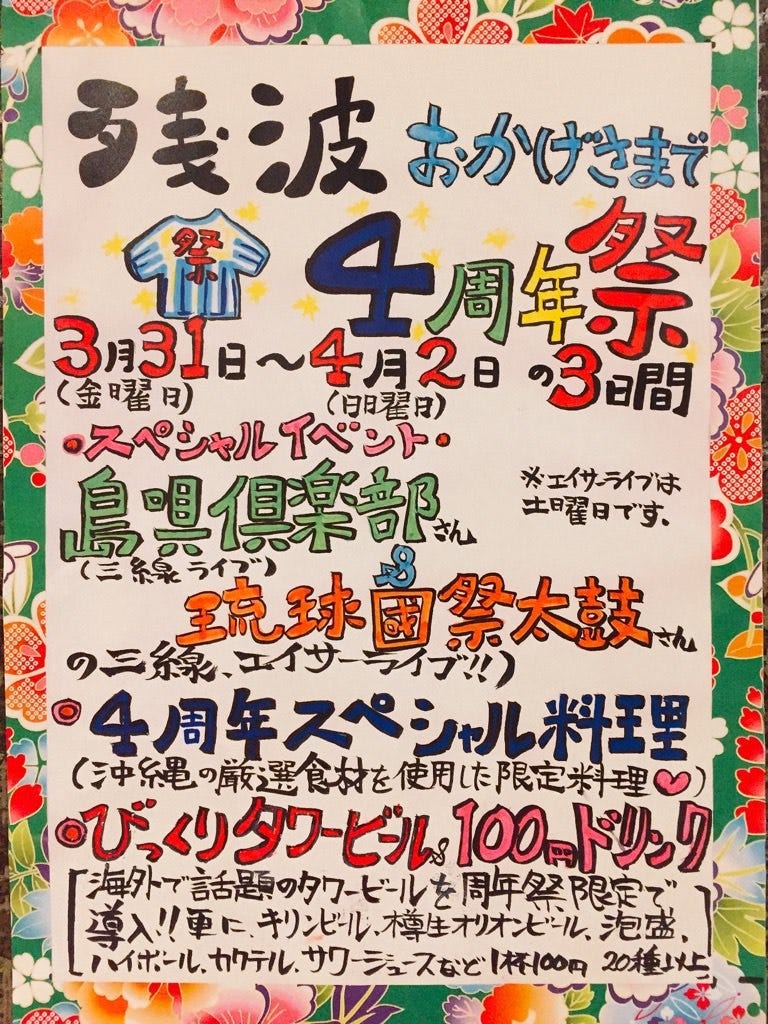 残波 おかげさまで
祭
4周年祭
3月31日〜4月2日の3日間
(金曜日) (日曜日)
•スペシャルイベント•
島唄倶楽部さん
※エイサーライブは
土曜日です。
(三線ライブ)
&
琉球國祭太鼓さん
の三線、エイサーライブ!!)
◎4周年スペシャル料理
(沖縄の厳選食材を使用した限定料理♡)
◎びっくりタワービール&100円ドリンク
[海外で話題のタワービールを周年祭限定で
導入!!更に、キリンビール、樽生オリオンビール、泡盛、
ハイボール、カクテル、サワージュースなど1杯100円 20種以上]